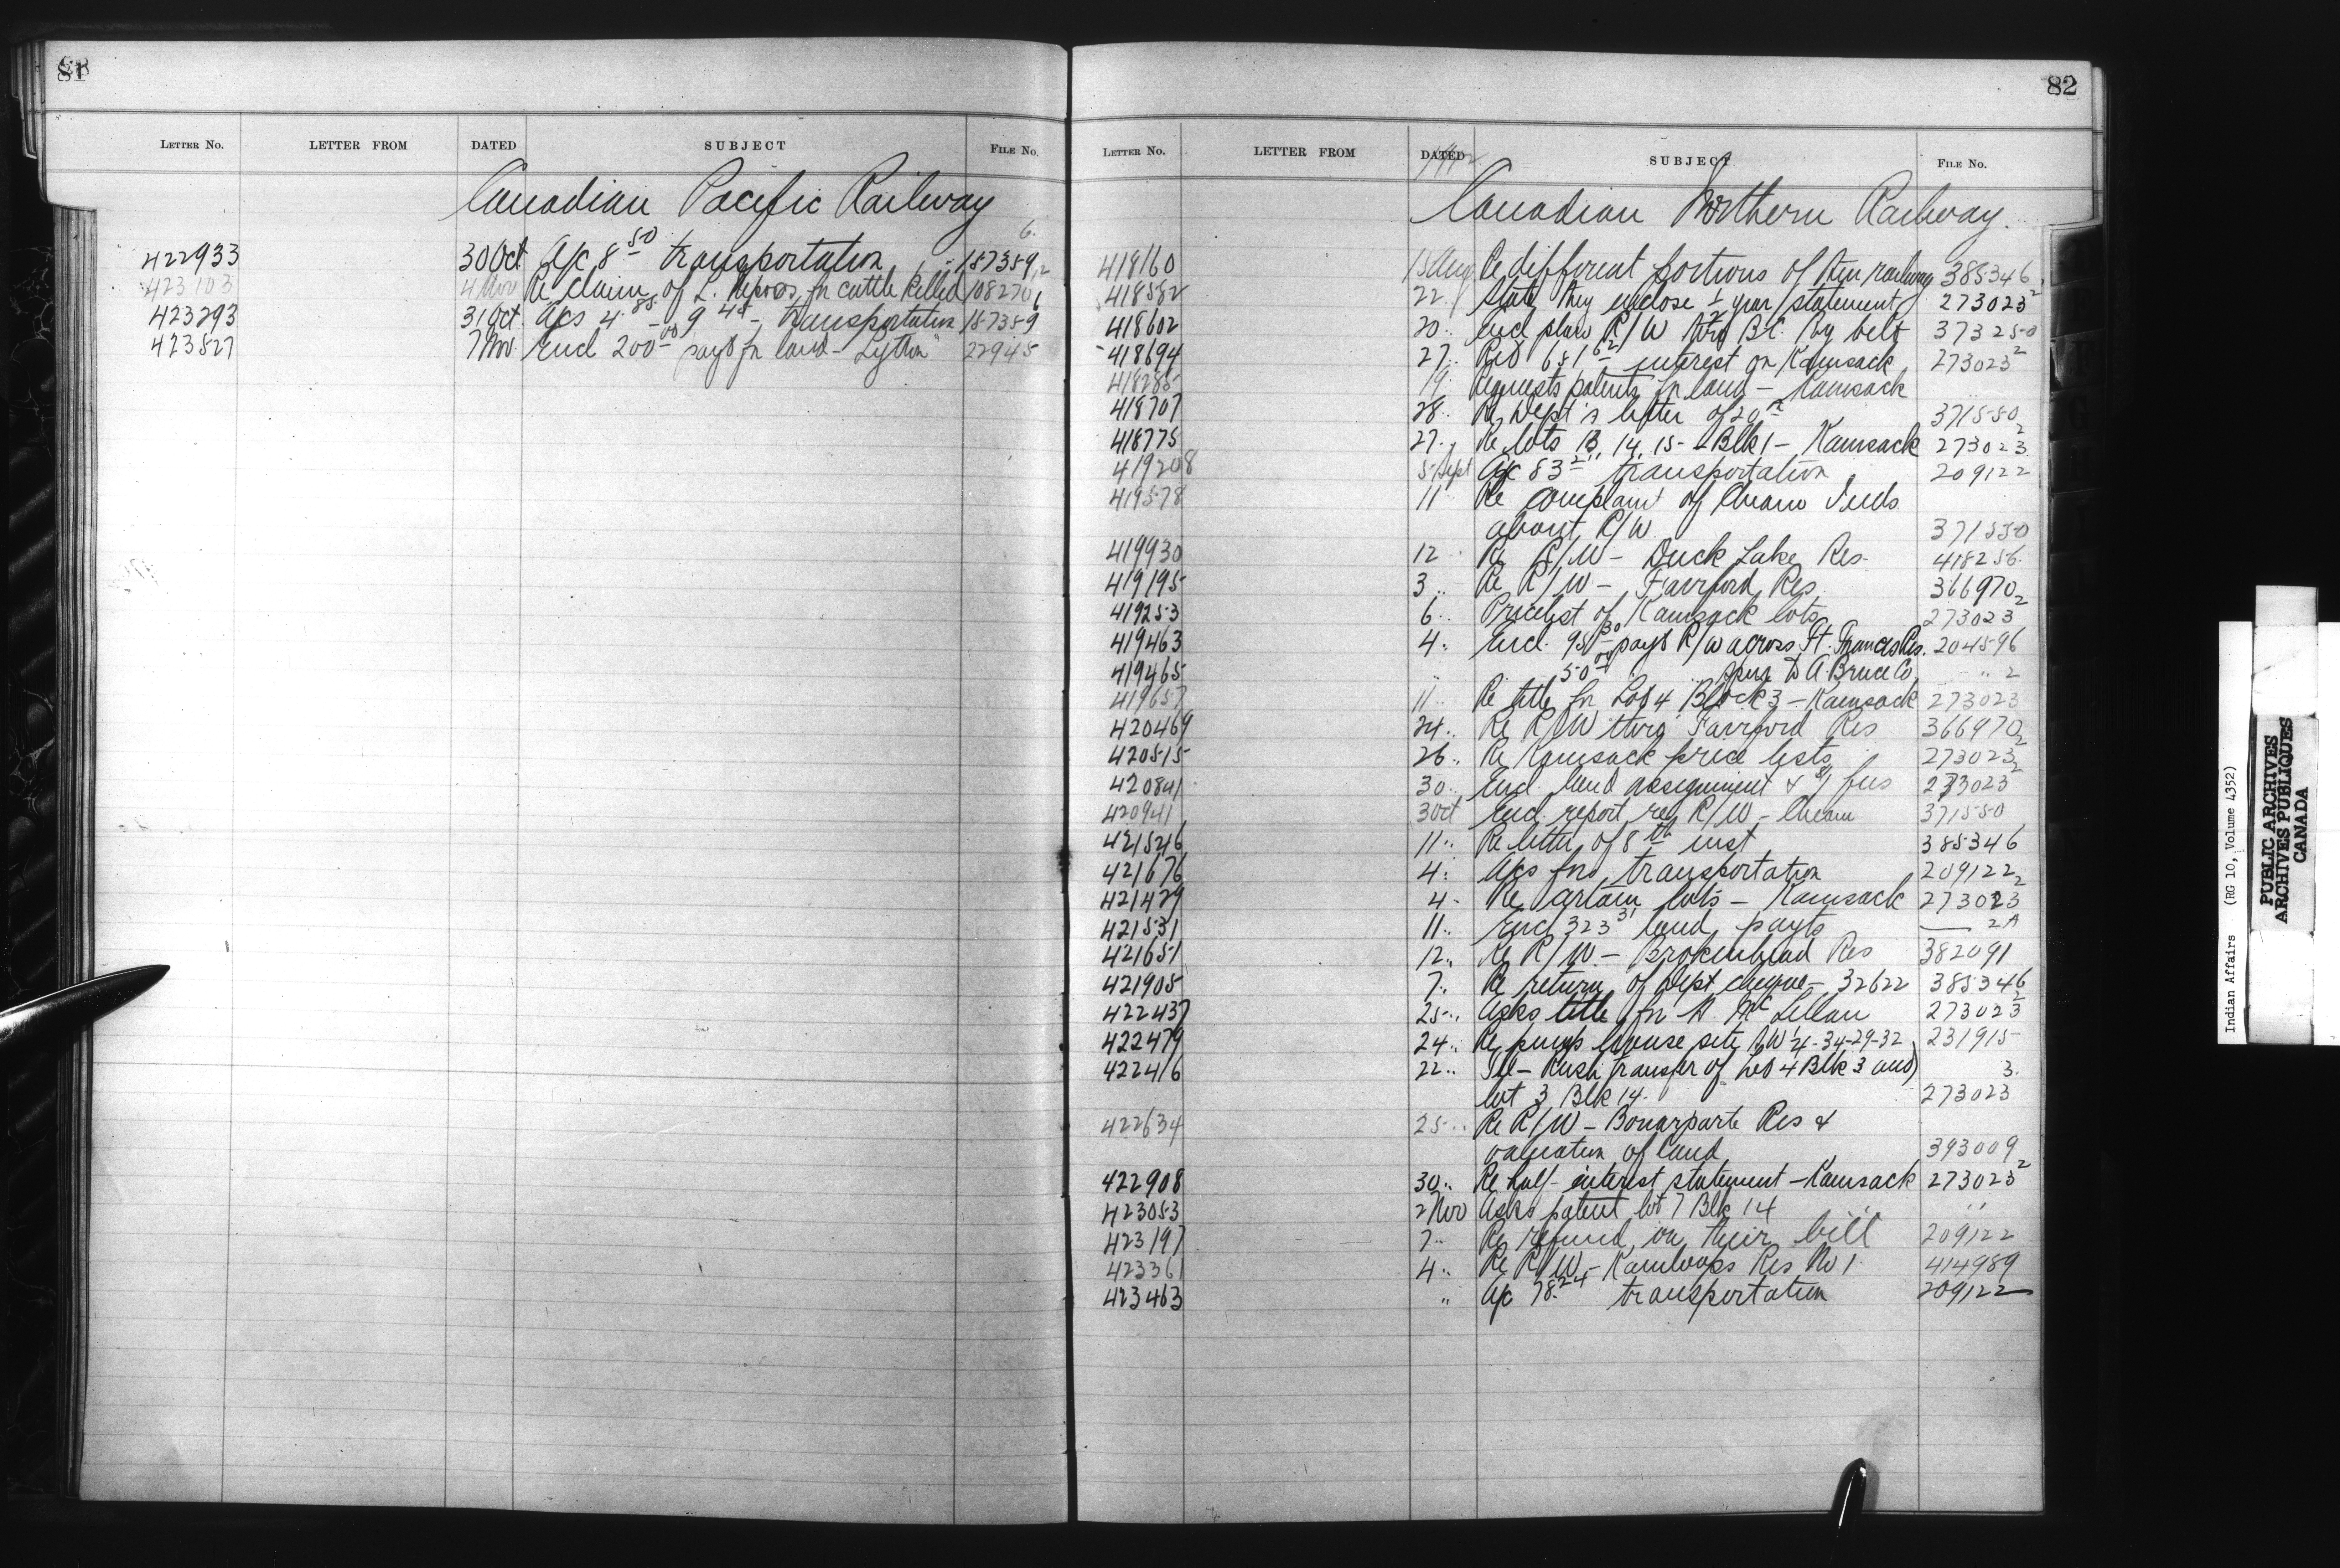 81
LETTER NO. LETTER FROM DATED SUBJECT FILE NO.
Canadian Pacific Railway
6.
422933 30 Oct A/c 8 50 transportation 187359
423103 4 Nov Re claim of L. for cattle killed 108270
423293 31 Oct A/cs 4 85 - 9 45 - transportation 187359
423527 7 Nov Encl 200 00 payt for land - Lytton 22945
82
LETTER NO. LETTER FROM DATED SUBJECT FILE NO.
Canadian Northern Railway.
418160 15 Aug Re different portions of their railway 385346
418582 22 State they enclose ½ year statement 273023 2
418602 20 Encl plan R/W thro B.C. Ry belt 373250
418694 27 Re 681 62 interest on Kamsack 273023 2
418285 19 Requests patents for land - Kamsack
418707 28 Re Dept's letter of 20th 371550
418775 27 Re lots 13, 14, 15 - Blk 1 - Kamsack 273023 2
419208 5 Sept A/c 83 transportation 209122
419578 11 Re complaint of Cheam Inds
about R/W 371550
419930 12 Re R/W - Duck Lake Res. 418256
419195 3 Re R/W - Fairford Res 366970
419253 6 Pricelist of Kamsack lots 273023 2
419463 4 Encl. 95 30 payt R/W across Ft. Frances Res. 204596
419465 " 50 00 spur to A Bruce Co " 2
419657 11 Re title for Lot 4 Block 3 - Kamsack 273023
420469 24 Re R/W thro' Fairford Res 366970
420515 26 Re Kamsack price lists 273023 2
420841 30 Encl. land assignment & fees 273023 2
420941 3 Oct Encl. report re R/W - Cheam 371550
421546 11 Re letter of 8th inst 385346
421676 4 A/cs for transportation 209122
421429 4 Re certain lots - Kamsack 273023 2
421531 11 Encl 323 31 land payts — 2A
421651 12 Re R/W - Brokenhead Res 382091
421905 7 Re return of Dept cheque - 32622 385346
422437 25 Asks title for McLellan 273023 2
422479 24 Re pump house site ¼-34-29-32 231915
422416 22 Tel - Rush transfer of lot 4 Blk 3 and 3.
lot 3 Blk 14. 273023
422634 25 Re R/W - Bonarparte Res &
valuation of land 393009
422908 30 Re half-interest statement - Kamsack 273023 2
423053 2 Nov Asks patent lot 7 Blk 14 "
423197 7 Re refund on their bill 209122
423361 4 Re R/W - Kamloops Res No 1 414989
423463 " A/c 78.24 transportation 209122
Indian Affairs (RG 10, Volume 4352)
PUBLIC ARCHIVES
ARCHIVES PUBLIQUES
CANADA